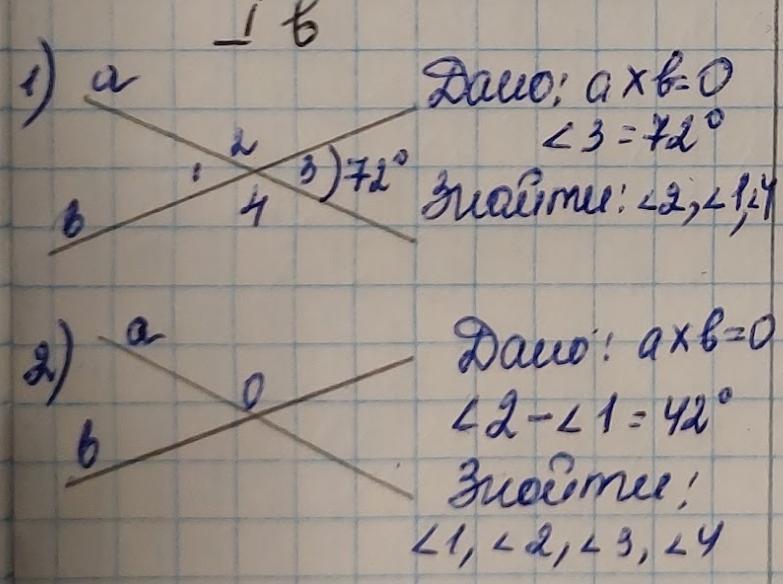 I в
1) a
b
1
2
3) 72°
4
Дано: a×b=0
∠3=72°
Знайти: ∠2,∠1,∠4
2) a
b
0
Дано: a×b=0
∠2-∠1=42°
Знайти:
∠1, ∠2, ∠3, ∠4